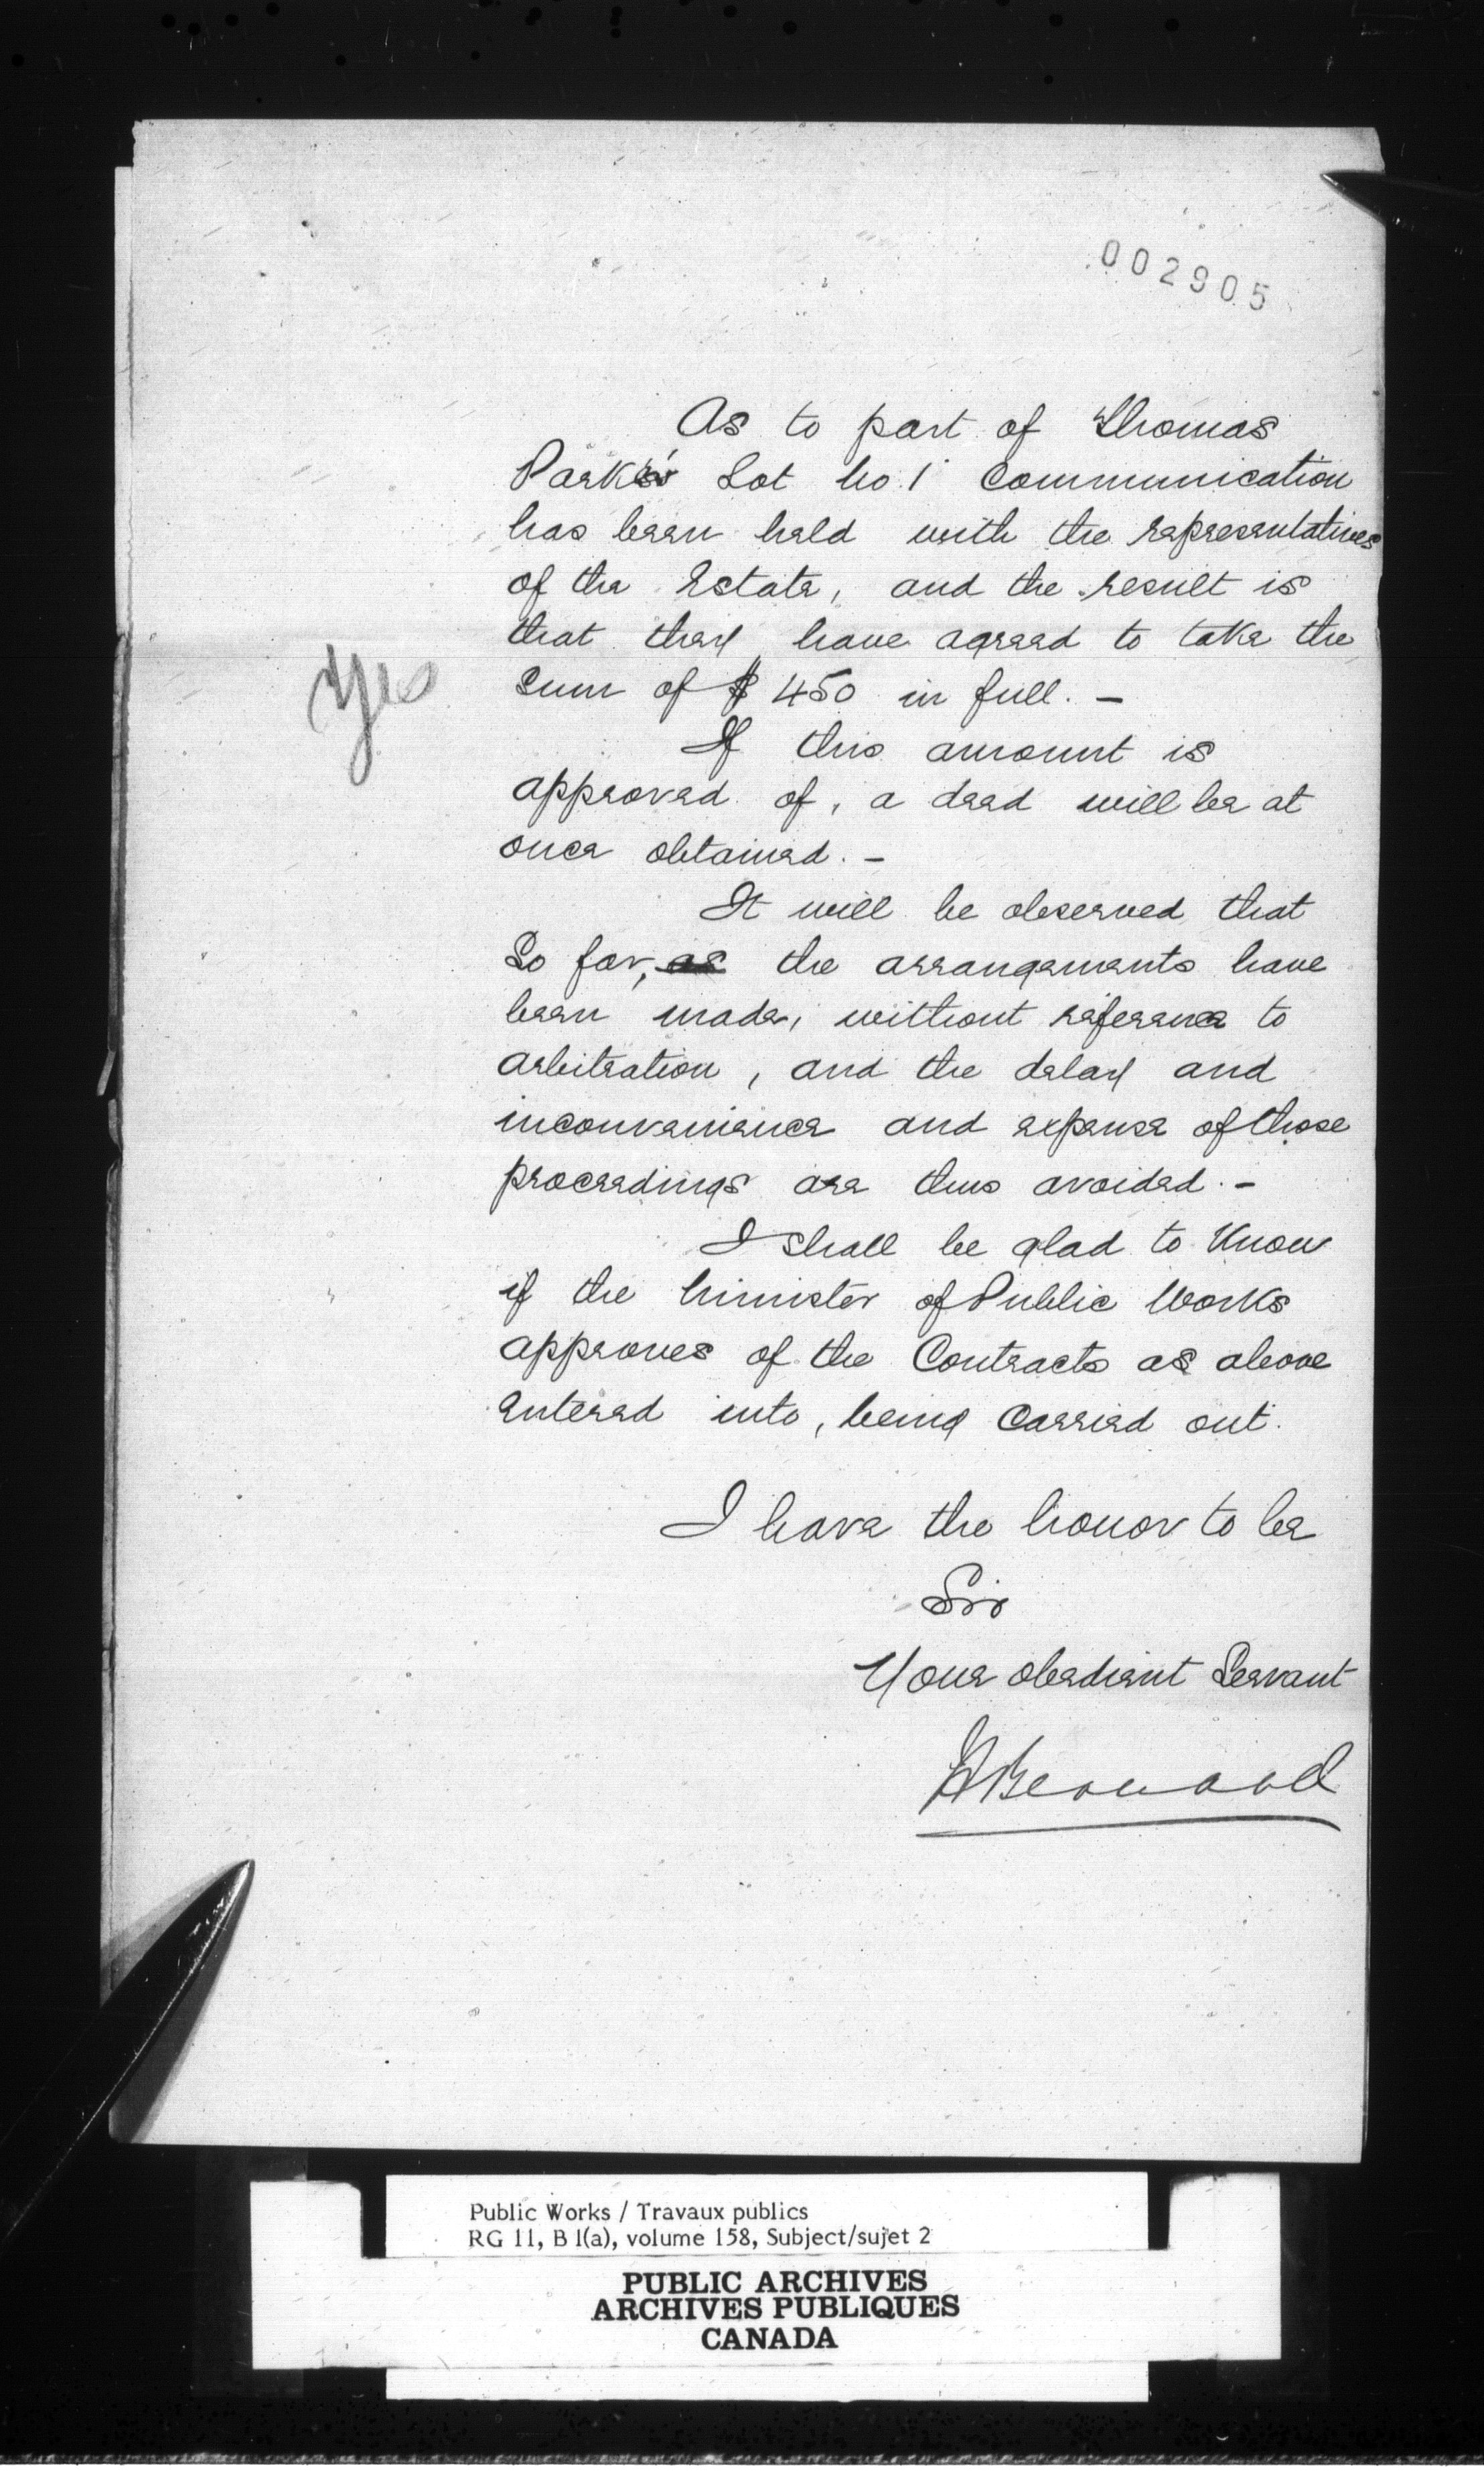 002905
As to part of Thomas
Park's Lot No. 1 Communication
has been held with the representatives
of the Estate, and the result is
that they have agreed to take the
Yes
sum of $450 in full. –
If this amount is
approved of, a deed will be at
once obtained. –
It will be observed that
So far, as the arrangements have
been made, without reference to
arbitration, and the delay and
inconvenience and expense of those
proceedings are thus avoided. –
I shall be glad to know
if the Minister of Public Works
approves of the Contracts as above
entered into, being Carried out.
I have the honor to be
Sir
Your obedient Servant
Public Works / Travaux publics
RG 11, B 1(a), volume 158, Subject/sujet 2
PUBLIC ARCHIVES
ARCHIVES PUBLIQUES
CANADA